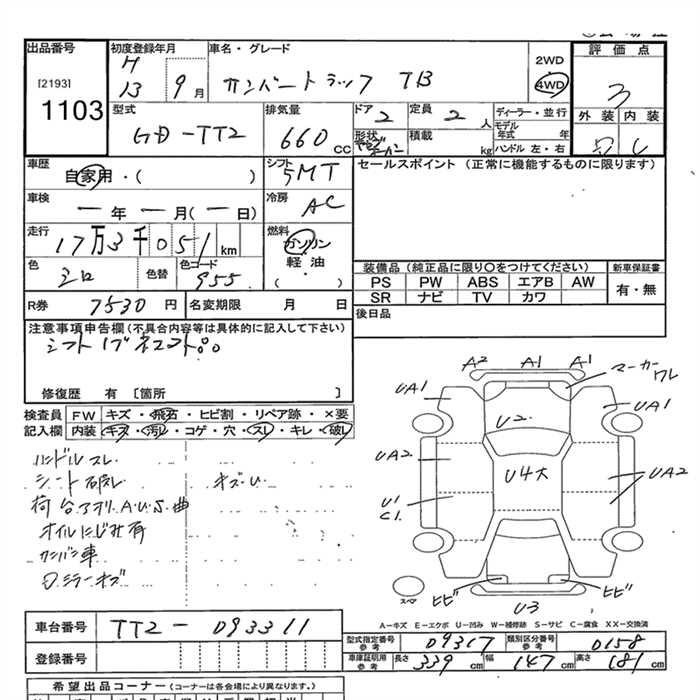 出品番号
[2193]
1103
初度登録年月
H13 9月
車名・グレード
サンバートラック TB
2WD
4WD
評価点
3
外装 内装
型式
GD-TT2
排気量
660 CC
ドア 2
形状
定員 2 人
積載 kg
ディーラー・並行
モデル年式 年
ハンドル 左・右
車歴
自家用・( )
シフト
5MT
セールスポイント (正常に機能するものに限ります)
車検
ー年ー月(ー日)
冷房
AC
走行
17万3千051km
燃料
ガソリン
軽油
( ・ )
色
シロ
色替
色コード
955
装備品 (純正品に限り〇をつけてください)
新車保証書
PS PW ABS エアB AW
SR ナビ TV カワ
有・無
R券 7530円
名変期限 月 日
後日品
注意事項申告欄(不具合内容等は具体的に記入して下さい)
修復歴 有 [箇所 ]
検査員 FW キズ・飛石・ヒビ割・リペア跡・×要
記入欄 内装 キズ・汚レ・コゲ・穴・スレ・キレ・破レ
ハンドルスレ
シート破レ キズ.U.
荷台アオリA.U.S.曲
オイルにじみ有
カンバン車
Dミラーキズ
A2 A1 A1
マーカーワレ
UA1
UA1
U2
UA2
U4大
UA2
U1
C1
ヒビ
ヒビ
U3
スペア
A-キズ E-エクボ U-凹み W-補修跡 S-サビ C-腐食 XX-交換済
車台番号 TT2-093311
登録番号
型式指定番号 参考 09317
類別区分番号 参考 0158
車庫証明用 参考 長さ 339cm 幅 147cm 高さ 181cm
希望出品コーナー (コーナーは各会場により異なります。)